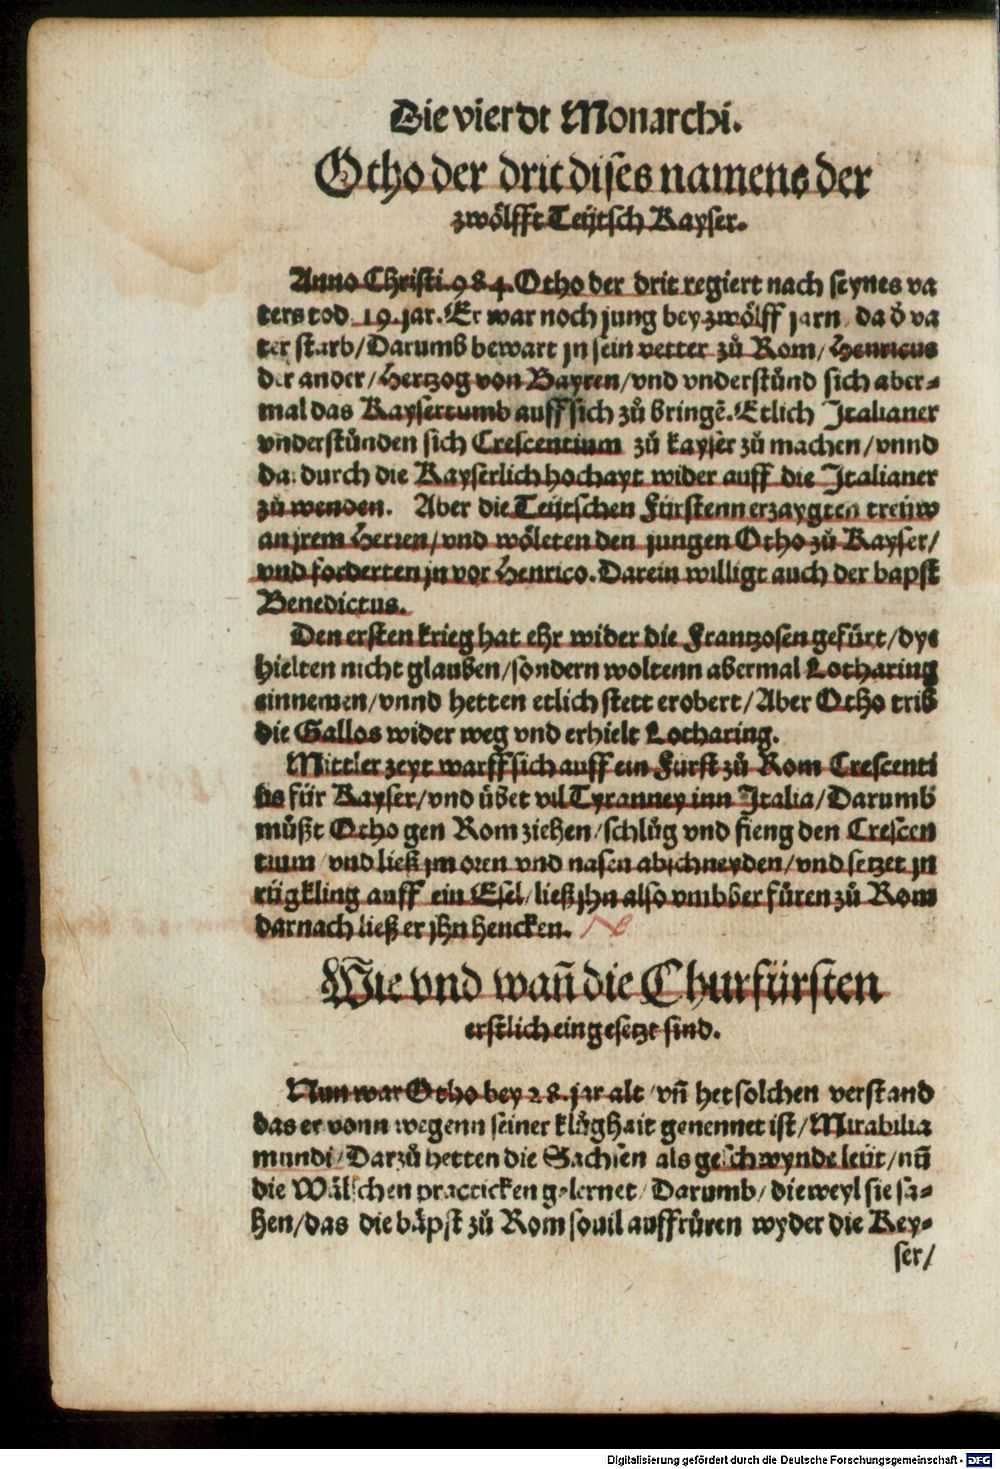 Die vierdt Monarchi.
Otho der drit dises namens der
zwölfft Teütsch Kayser.
Anno Christi 984. Otho der drit regiert nach seynes va
ters tod 19. jar. Er war noch jung bey zwölff jarn da d̕ va
ter starb/ Darumb bewart jn sein vetter zů Rom/ Henricus
der ander/ Hertzog von Bayren/ vnd vnderstůnd sich aber-
mal das Kaysertumb auff sich zů bringē. Etlich Italianer
vnderstůnden sich Crescentium zů kayser zů machen/ vnnd
da durch die Kayserlich hochayt wider auff die Italianer
zů wenden. Aber die Teütschen Fürstenn erzaygten treüw
an jrem Herren/ vnd wöleten den jungen Otho zů Kayser/
vnd forderten jn vor Henrico. Darein willigt auch der bapst
Benedictus.
Den ersten krieg hat ehr wider die Frantzosen gefürt/ dye
hielten nicht glauben/ sondern woltenn abermal Lotharing
einnemen/ vnnd hetten etlich stett erobert/ Aber Otho trib
die Gallos wider weg vnd erhielt Lotharing.
Mittler zeyt warff sich auff ein Fürst zů Rom Crescenti
us für Kayser/ vnd übet vil Tyranney inn Italia/ Darumb
můßt Otho gen Rom ziehen/ schlůg vnd fieng den Crescen
tium/ vnd ließ jm oren vnd nasen abschneyden/ vnd setzet jn
rügkling auff ein Esel/ ließ jhn also vmbher füren zů Rom
darnach ließ er jhn hencken.
Wie vnd wañ die Churfürsten
erstlich eingesetzt sind.
Nun war Otho bey 28. jar alt/ vñ het solchen verstand
das er vonn wegenn seiner klůghait genennet ist/ Mirabilia
mundi/ Darzů hetten die Sachsen als geschwynde leüt/ nũ
die Wälschen practicken gelernet/ Darumb/ dieweyl sie sa-
hen/ das die bäpst zů Rom souil auffrüren wyder die Key-
ser/
Digitalisierung gefördert durch die Deutsche Forschungsgemeinschaft - DFG